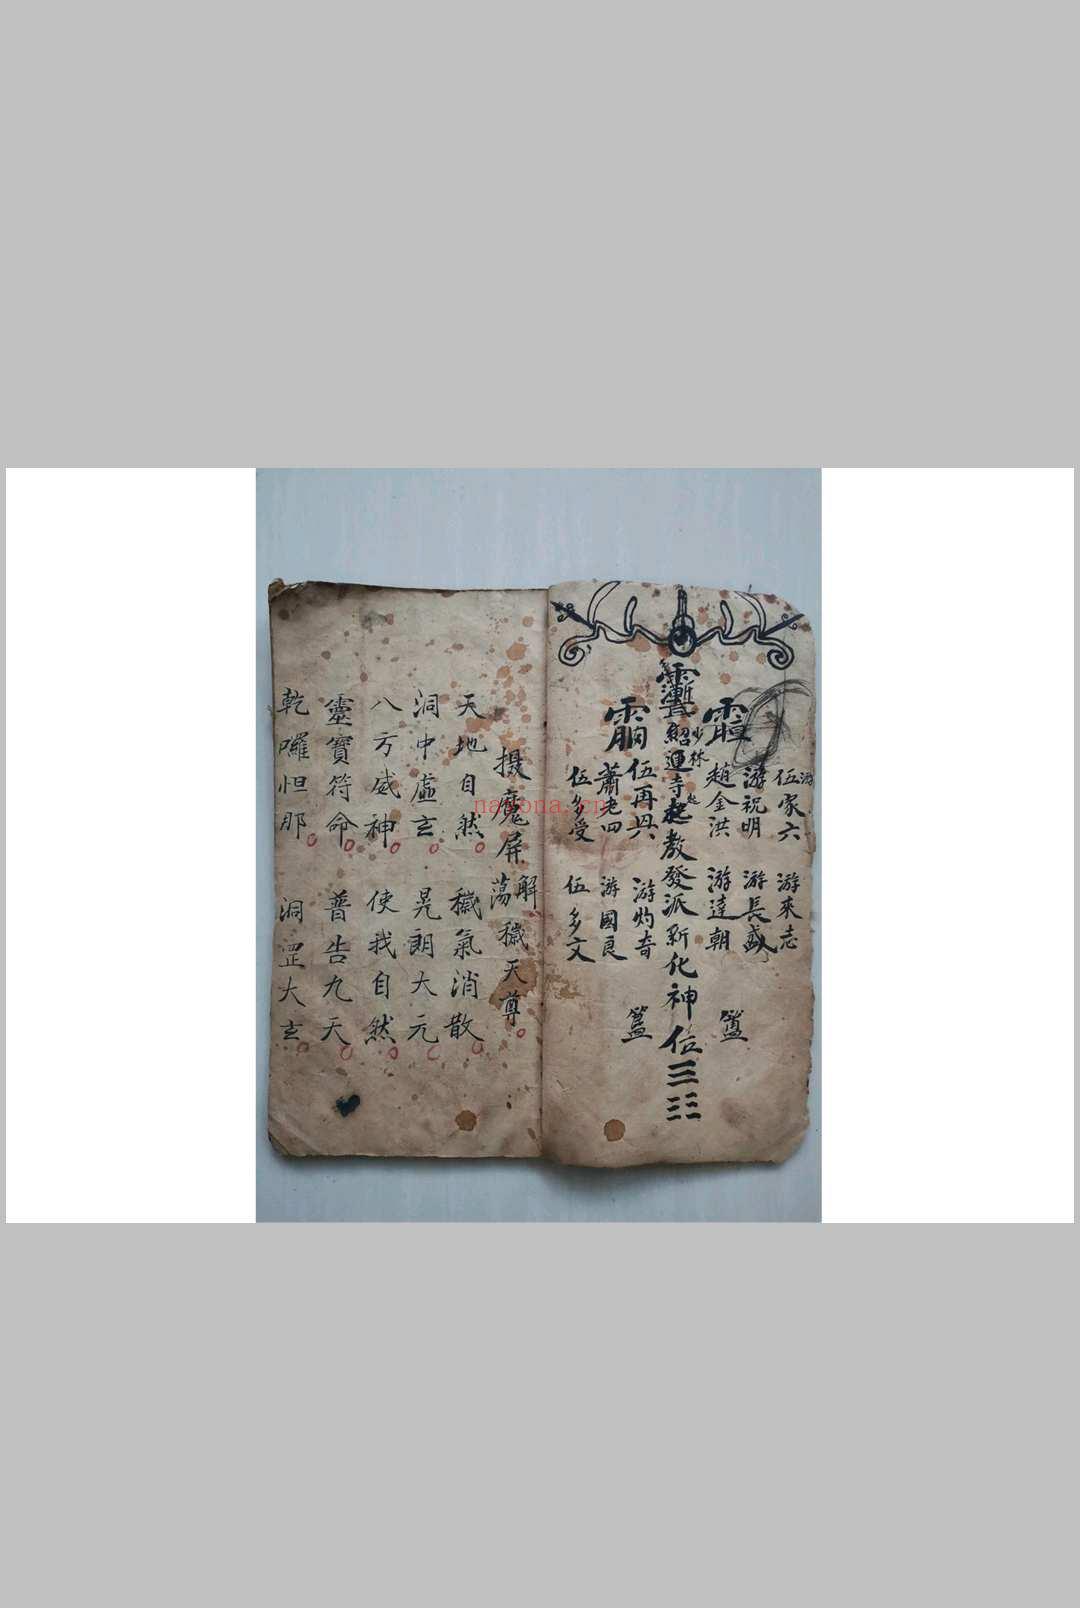 游
伍家六 游來志
游祝明 游長盛
趙金洪 游達朝
少林
紹運寺起教發派新化神位
起
伍再興 游灼奇
蕭老四 游國良
伍多受 伍多文
摄魔屏蕩穢天尊
解
天地自然 穢氣消散
洞中虛玄 晃朗大元
八方威神 使我自然
靈寶符命 普告九天
乾囉怛那 洞罡大玄
nayona.cn